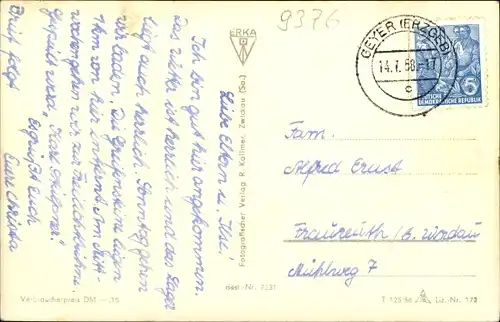 9376
GEYER (ERZGEB)
14.7.58.-17
c
5
DEUTSCHE
DEMOKRATISCHE REPUBLIK
ERKA
Liebe Eltern u. Uli!
Ich bin gut hier angekommen.
Das Wetter ist herrlich und das Lager
liegt auch herrlich. Sonntag gehen
wir baden. Die Greifensteine liegen
von hier entfernt. Am
wir zur Freilichtbühne.
gespielt wird "Karl Stülpner".
Es grüßt Euch
Eure Christa
Brief folgt
Fotografischer Verlag R. Kallmer, Zwickau (Sa.)
Fam.
Alfred Ernst
Fraureuth / b. Werdau
Mühlweg 7
Best.-Nr. 7231
Verbraucherpreis DM —.15
T 125/56 Liz.-Nr. 173